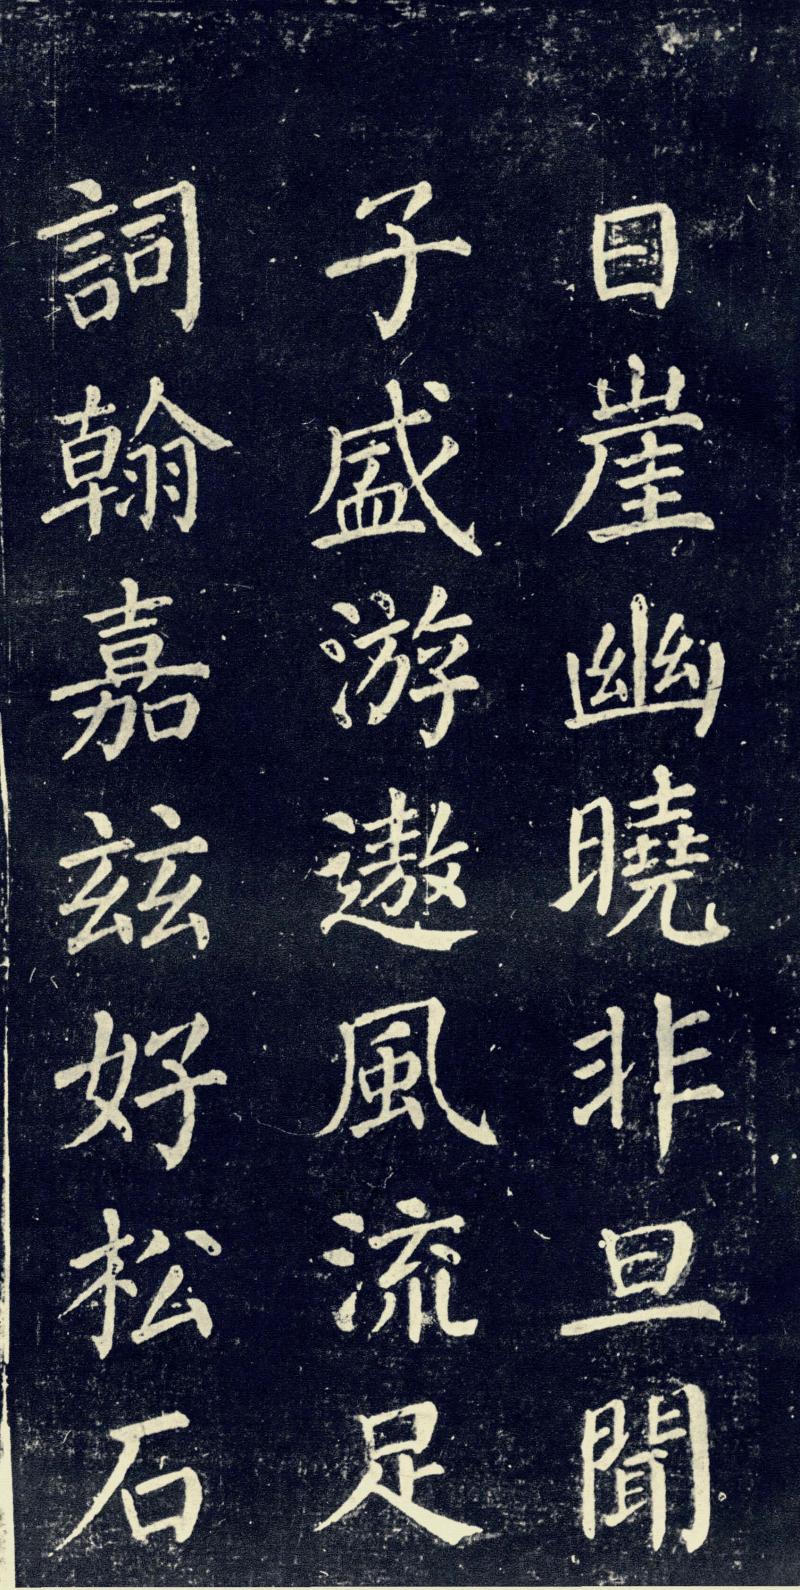 日崖幽曉非旦聞
子盛游遨風流足
詞翰嘉茲好松石